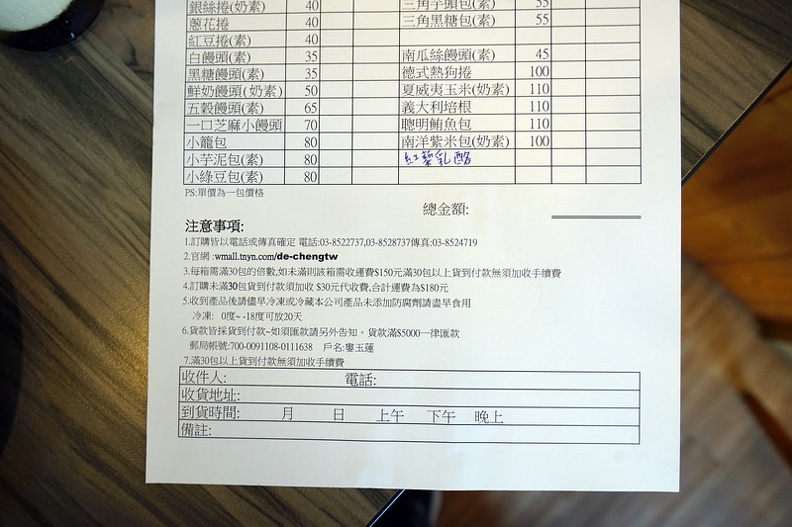 銀絲捲(奶素) 40 三角芋頭包(素) 55
蔥花捲 40 三角黑糖包(素) 55
紅豆捲(素) 40
白饅頭(素) 35 南瓜絲饅頭(素) 45
黑糖饅頭(素) 35 德式熱狗捲 100
鮮奶饅頭(奶素) 50 夏威夷玉米(奶素) 110
五穀饅頭(素) 65 義大利培根 110
一口芝麻小饅頭 70 聰明鮪魚包 110
小籠包 80 南洋紫米包(奶素) 100
小芋泥包(素) 80 紅藜乳酪
小綠豆包(素) 80
PS:單價為一包價格
總金額:
注意事項:
1.訂購皆以電話或傳真確定 電話:03-8522737,03-8528737傳真:03-8524719
2.官網 :wmall.tnyn.com/de-chengtw
3.每箱需滿30包的倍數,如未滿則該箱需收運費$150元滿30包以上貨到付款無須加收手續費
4.訂購未滿30包貨到付款須加收 $30元代收費,合計運費為$180元
5.收到產品後請儘早冷凍或冷藏本公司產品未添加防腐劑請盡早食用
冷凍: 0度~-18度可放20天
6.貨款皆採貨到付款~如須匯款請另外告知。貨款滿$5000一律匯款
郵局帳號:700-0091108-0111638 戶名:婁玉蓮
7.滿30包以上貨到付款無須加收手續費
收件人: 電話:
收貨地址:
到貨時間: 月 日 上午 下午 晚上
備註: